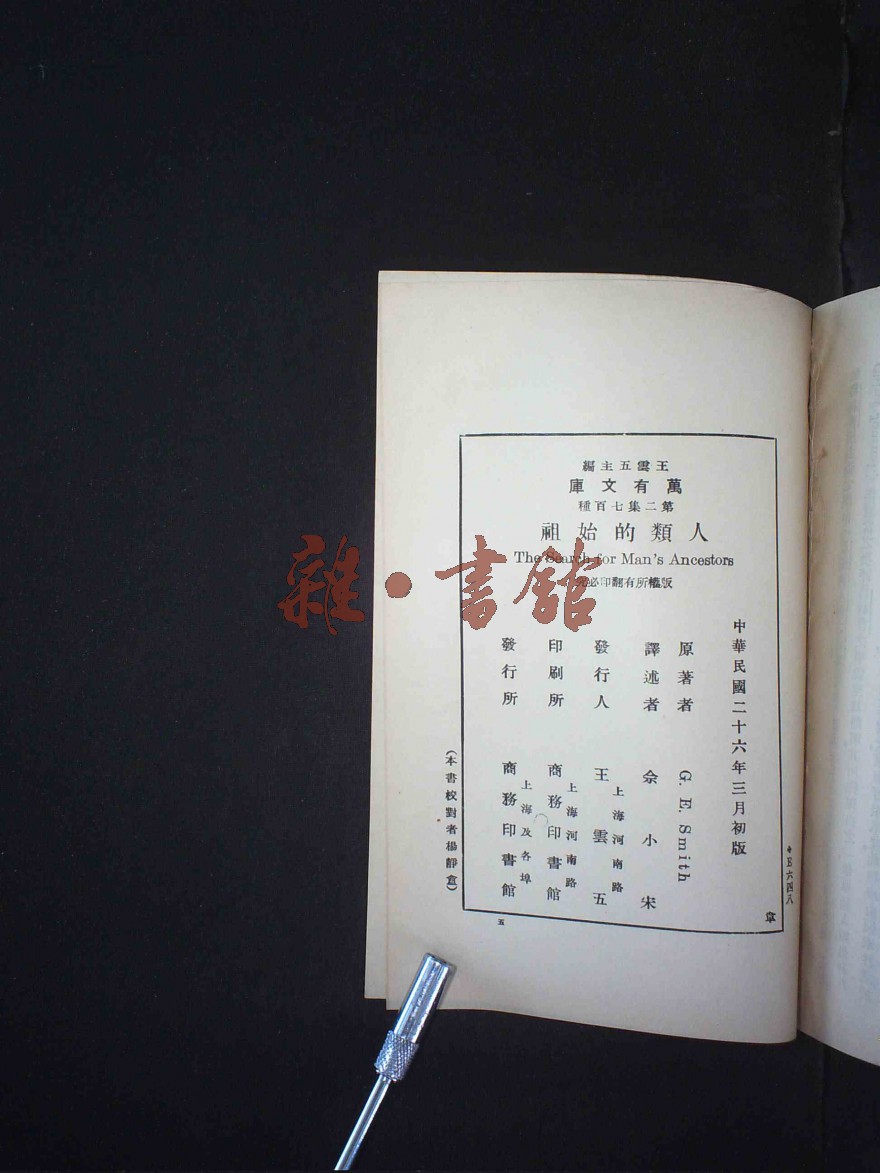 王雲五主編
萬有文庫
第二集七百種
人類的始祖
The Search for Man's Ancestors
版權所有翻印必究
中華民國二十六年三月初版
原著者 G. E. Smith
譯述者 佘小宋
發行人 王雲五
上海河南路
印刷所 商務印書館
上海河南路
發行所 商務印書館
上海及各埠
(本書校對者楊靜盦)
五
章
雜·書館